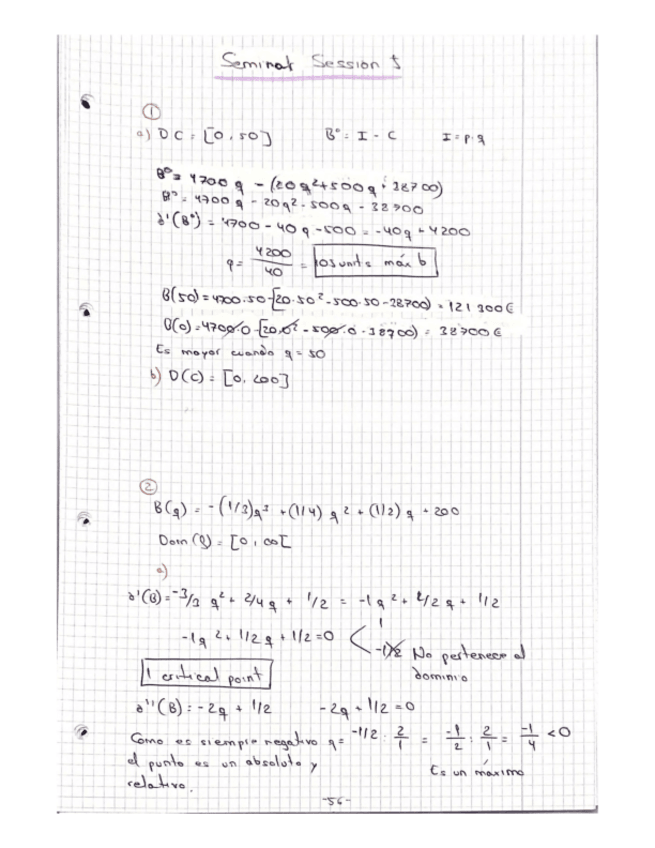 Seminar Session 5
①
a) DC = [0, 50] Bº = I - C I = p·q
Bº = 4700q - (20q² + 500q + 38700)
Bº = 4700q - 20q² - 500q - 38700
∂'(Bº) = 4700 - 40q - 500 = -40q + 4200
q = 4200/40 = 105 units máx b
B(50) = 4700·50 - [20·50² - 500·50 - 38700) = 121 300€
B(0) = 4700·0 - [20·0² - 500·0 - 38700) = 38700€
Es mayor cuando q = 50
b) D(C) = [0, 200]
②
B(q) = -(1/3)q³ + (1/4)q² + (1/2)q + 200
Dom(B) = [0, ∞[
a)
∂'(B) = -3/3 q² + 2/4 q + 1/2 = -1q² + 1/2 q + 1/2
-1q² + 1/2 q + 1/2 = 0 < 1
-1/2 No pertenece al
dominio
1 critical point
∂''(B) = -2q + 1/2 -2q + 1/2 = 0
Como es siempre negativo q = -1/2 : 2/1 = -1/2 : 2/1 = -1/4 < 0
el punto es un absoluto y
Es un máximo
relativo.
-56-